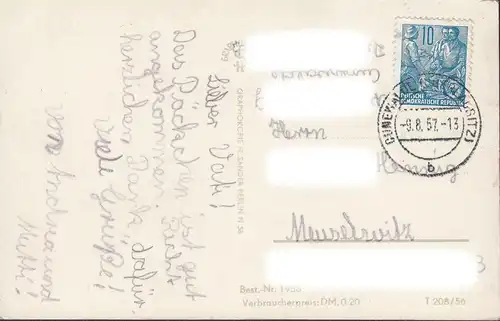 Lieber Vati!
Das Päckchen ist gut
angekommen. Recht
herzlichen Dank dafür.
Viele Grüße!
von Andrea und
Mutti!
GRAPHOKOPIE H. SANDER BERLIN N 56
10
DEUTSCHE
DEMOKRATISCHE REPUBLIK
-9.8.57.-13
b
Herrn
Meuselwitz
Best.-Nr. 1986
Verbraucherpreis: DM. 0.20
T 208/56